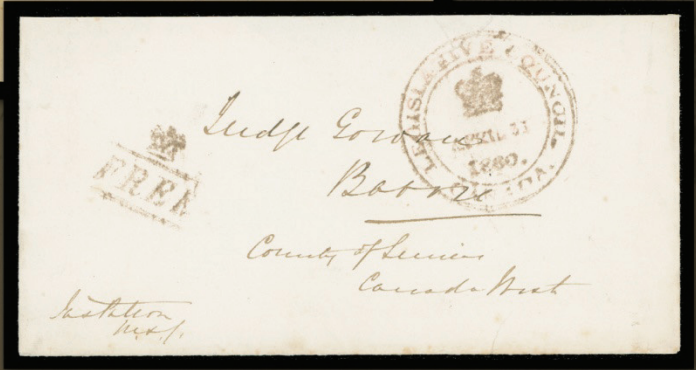 LEGISLATIVE COUNCIL CANADA.
APRIL 21
1860.
FREE
Judge Gowan
Barrie
County of Simcoe
Canada West